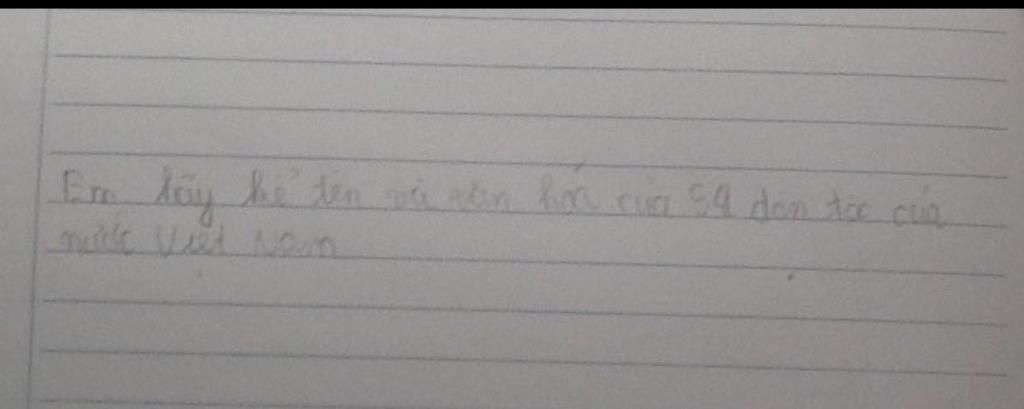 Em hãy kể tên và văn hoá của 54 dân tộc của
nước Việt Nam